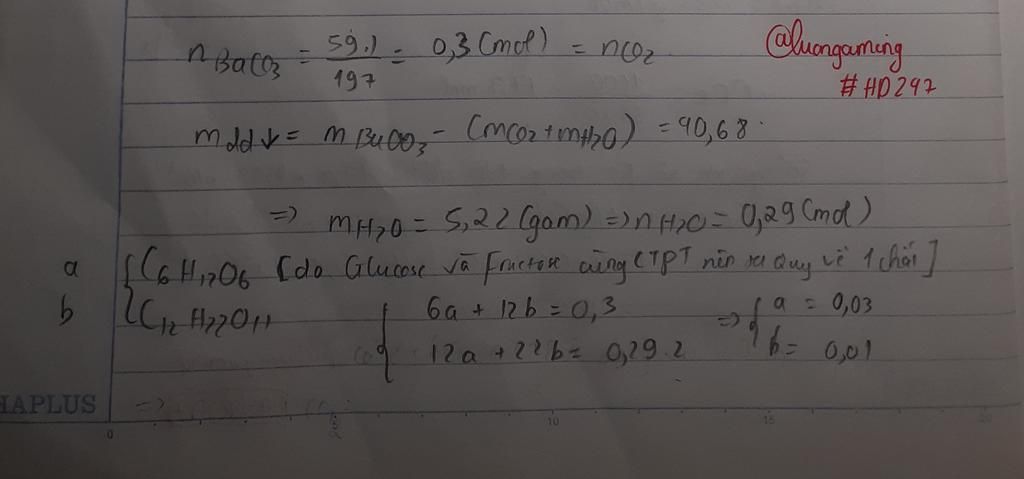 n BaCO3 = 59.1 / 197 = 0,3 (mol) = nCO2
@luongaming
#HD297
m dd↓ = m BaCO3 - (mCO2 + mH2O) = 40,68.
=> mH2O = 5,22 (gam) => nH2O = 0,29 (mol)
a { C6H12O6 [do Glucose và fructose cùng CTPT nên ta quy về 1 chất]
b C12H22O11 { 6a + 12b = 0,3 => { a = 0,03
12a + 22b = 0,29.2 b = 0,01
HAPLUS =>
0 5 10 15 20